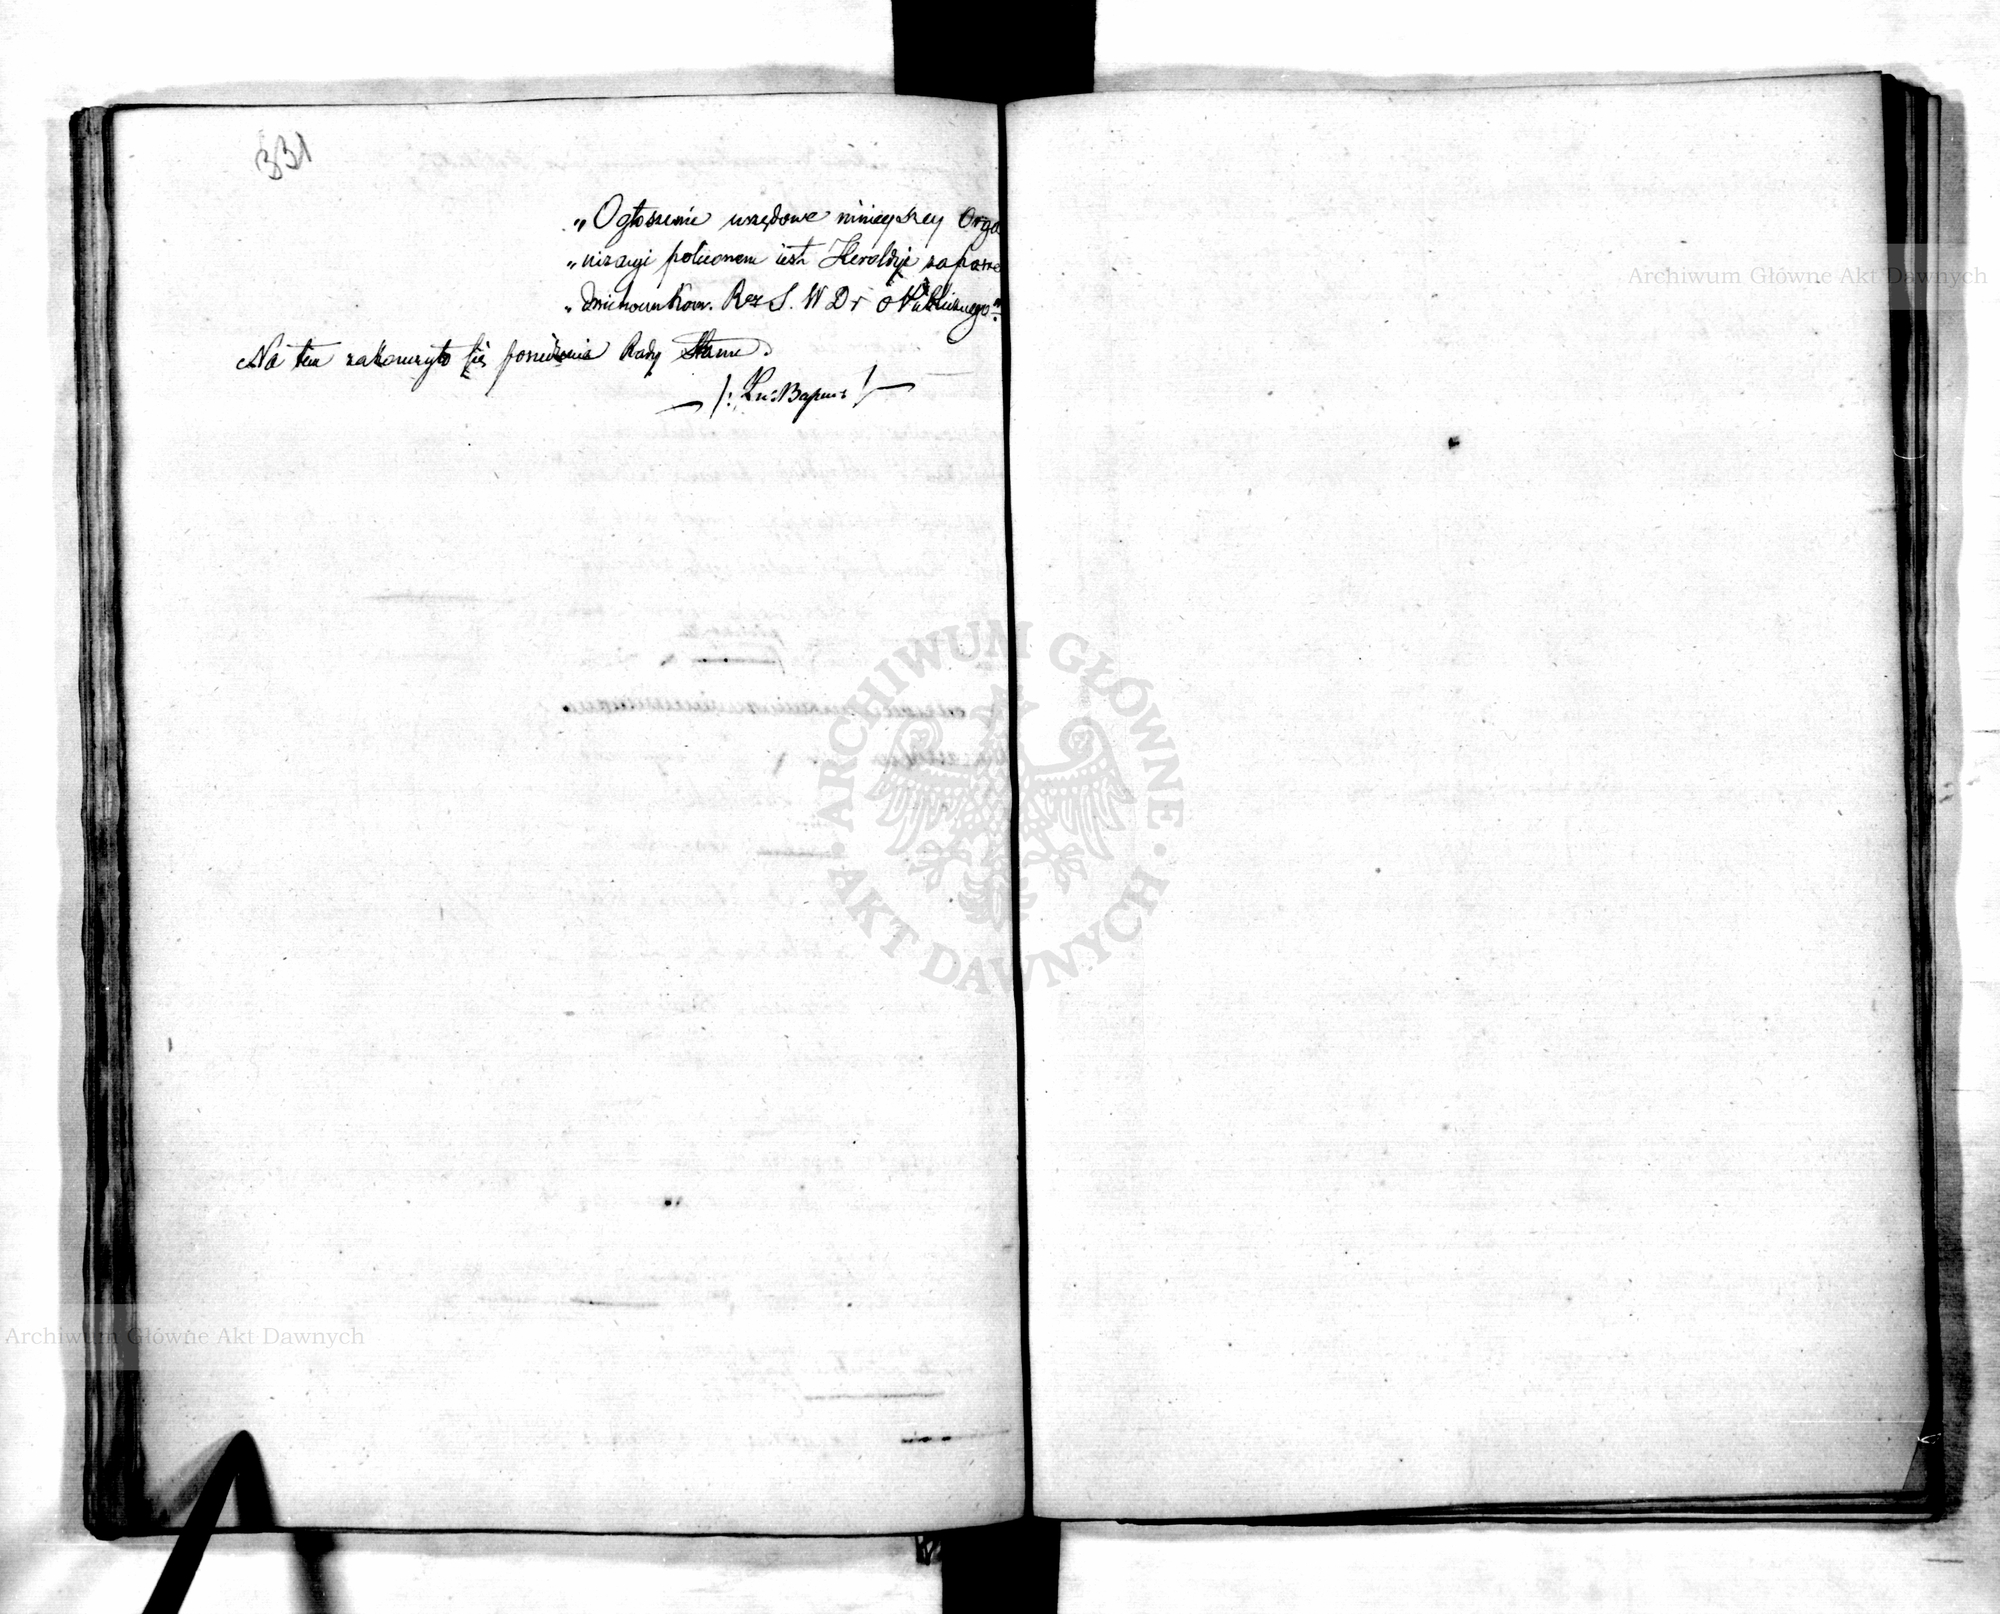 331
„Ogłoszenie urzędowe ninieyszey Orga
„nizacyi polecone iest Heroldyi za pośre
„dnictwem Kom. Rz. S. W. D. i O Publicznego“.
Na tem zakończyło się posiedzenie Rady Stanu.
Archiwum Główne Akt Dawnych
ARCHIWUM GŁÓWNE · AKT DAWNYCH ·
Archiwum Główne Akt Dawnych